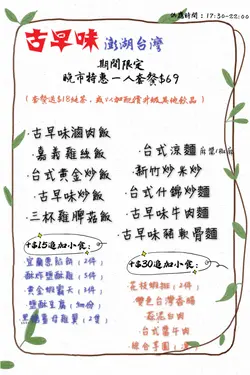 供應時間：17:30-22:00
古早味 澎湖台灣
期間限定
晚市特惠一人套餐$69
(套餐送$18純茶，或以加配價升級其他飲品)
·古早味滷肉飯
·嘉義雞絲飯
·台式黃金炒飯
·古早味炒飯
·三杯雞髀菇飯
·台式涼麵
·新竹炒米粉
·台式什錦炒麵
·古早味牛肉麵
·古早味豬軟骨麵
+$15追加小食：
·宜蘭蔥餡餅（2件）
·酥炸鹽酥雞（5件）
·黃金蝦霸天（3件）
·鹽酥豆腐
+$30追加小食：
·花枝蝦排（2件）
·雙色台灣香腸
·蒜泥白肉
·台式醬牛肉
·綜合芋圓